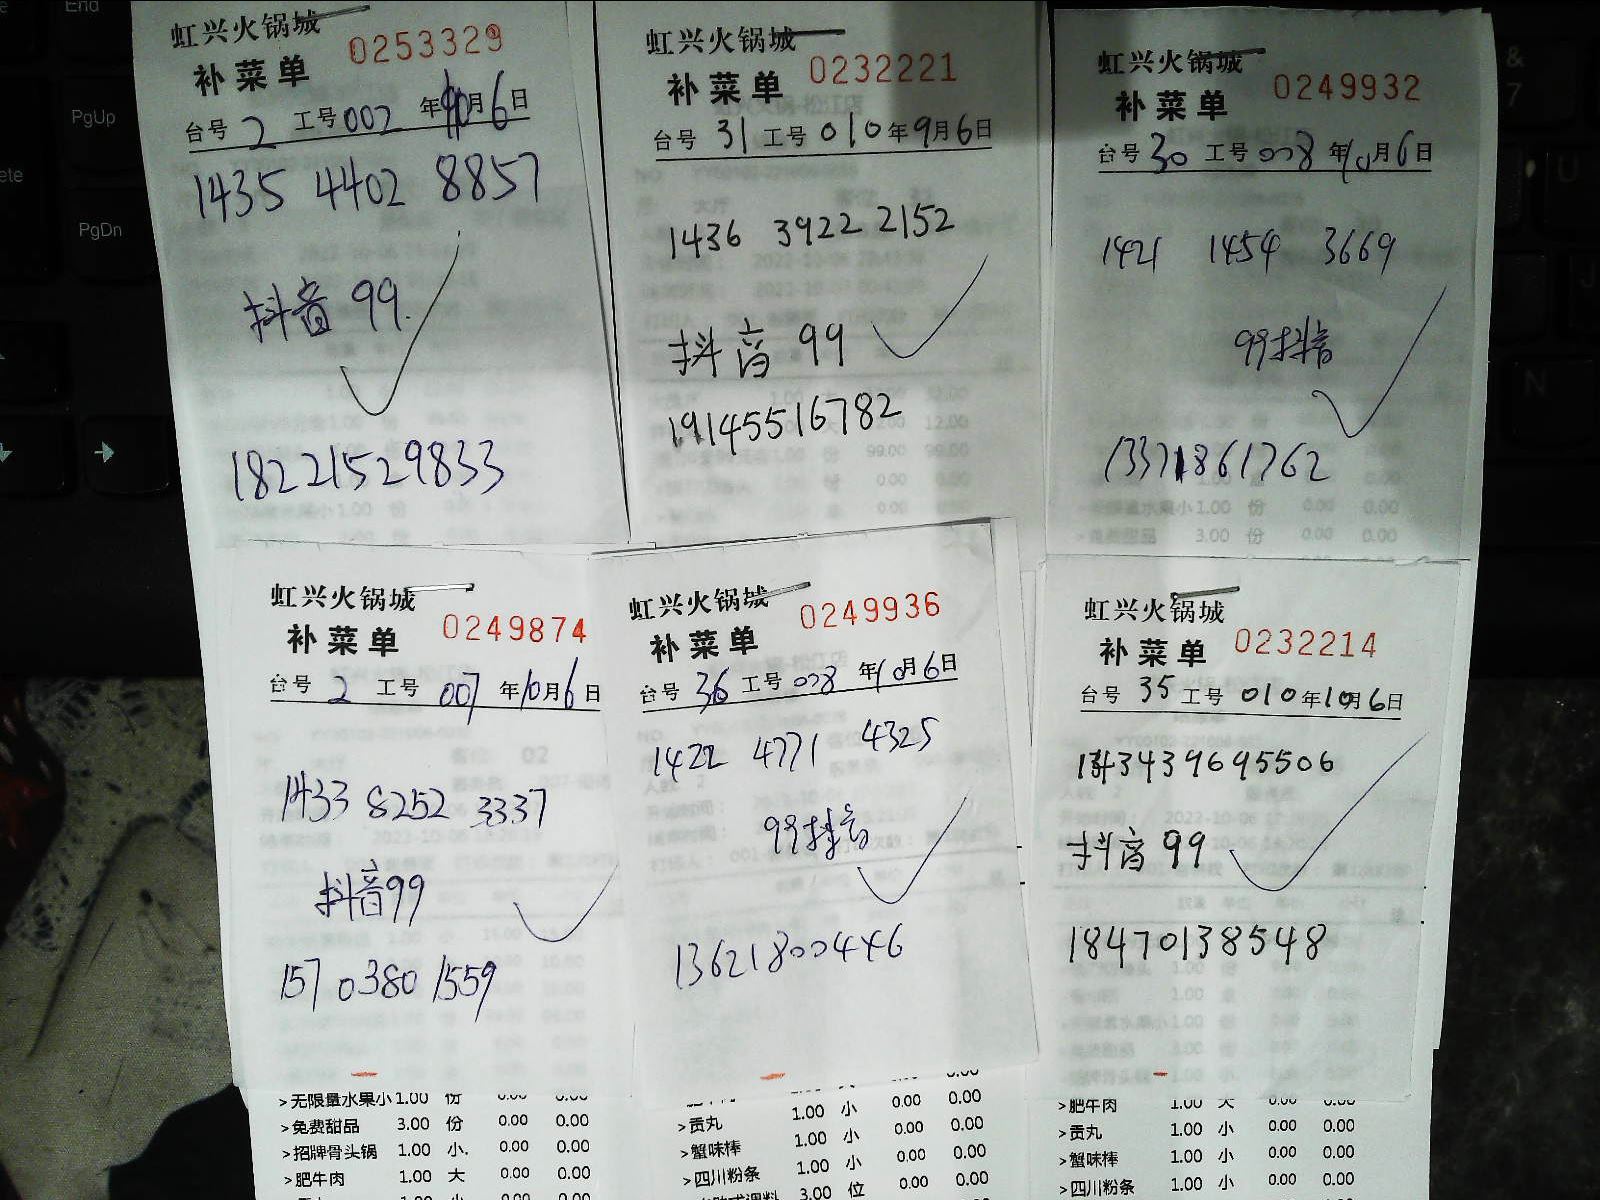 End
PgUp
PgDn
虹兴火锅城 0253329
补菜单
台号 2 工号 002 年 10月 6日
1435 4402 8857
抖音 99.
18221529833
虹兴火锅城 0232221
补菜单
台号 31 工号 010 年 9月 6日
1436 3922 2152
抖音 99
19145516782
虹兴火锅城 0249932
补菜单
台号 30 工号 008 年 10月 6日
1421 1454 3669
99抖音
13371861762
虹兴火锅城 0249874
补菜单
台号 2 工号 007 年 10月 6日
1433 8252 3337
抖音99
157 0380 1559
>无限量水果小 1.00 份 0.00 0.00
>免费甜品 3.00 份 0.00 0.00
>招牌骨头锅 1.00 小. 0.00 0.00
>肥牛肉 1.00 大 0.00 0.00
虹兴火锅城 0249936
补菜单
台号 36 工号 008 年 10月 6日
1422 4771 4325
99抖音
13621800446
>贡丸 1.00 小 0.00 0.00
>蟹味棒 1.00 小 0.00 0.00
>四川粉条 1.00 小 0.00 0.00
3.00 位 0.00 0.00
虹兴火锅城 0232214
补菜单
台号 35 工号 010 年 10月 6日
143439695506
抖音 99
18470138548
>肥牛肉 1.00 大 0.00 0.00
>贡丸 1.00 小 0.00 0.00
>蟹味棒 1.00 小 0.00 0.00
>四川粉条 1.00 小 0.00 0.00